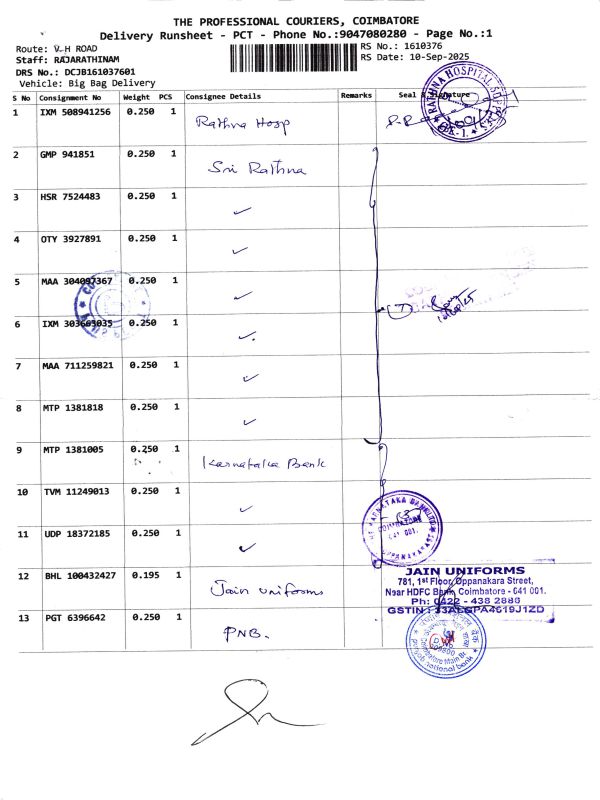 THE PROFESSIONAL COURIERS, COIMBATORE
Delivery Runsheet - PCT - Phone No.:9047080280 - Page No.:1
Route: V H ROAD
RS No.: 1610376
Staff: RAJARATHINAM
RS Date: 10-Sep-2025
DRS No.: DCJB161037601
Vehicle: Big Bag Delivery
S No Consignment No Weight PCS Consignee Details Remarks Seal & Signature
1 IXM 508941256 0.250 1 Rathna Hosp
RATHNA HOSPITAL
2 GMP 941851 0.250 1 Sri Rathna
3 HSR 7524483 0.250 1 ✓
4 OTY 3927891 0.250 1 ✓
5 MAA 304097367 0.250 1 ✓
6 IXM 303663035 0.250 1 ✓
7 MAA 711259821 0.250 1 ✓
8 MTP 1381818 0.250 1 ✓
9 MTP 1381005 0.250 1 Karnataka Bank
10 TVM 11249013 0.250 1 ✓
KARNATAKA BANK
COIMBATORE
641 001.
OPPANAKARA
11 UDP 18372185 0.250 1 ✓
12 BHL 100432427 0.195 1 Jain uniforms
JAIN UNIFORMS
781, 1st Floor, Oppanakara Street,
Near HDFC Bank, Coimbatore - 641 001.
Ph: 0422 - 436 2886
13 PGT 6396642 0.250 1 PNB.
punjab national bank
Coimbatore Main Br.